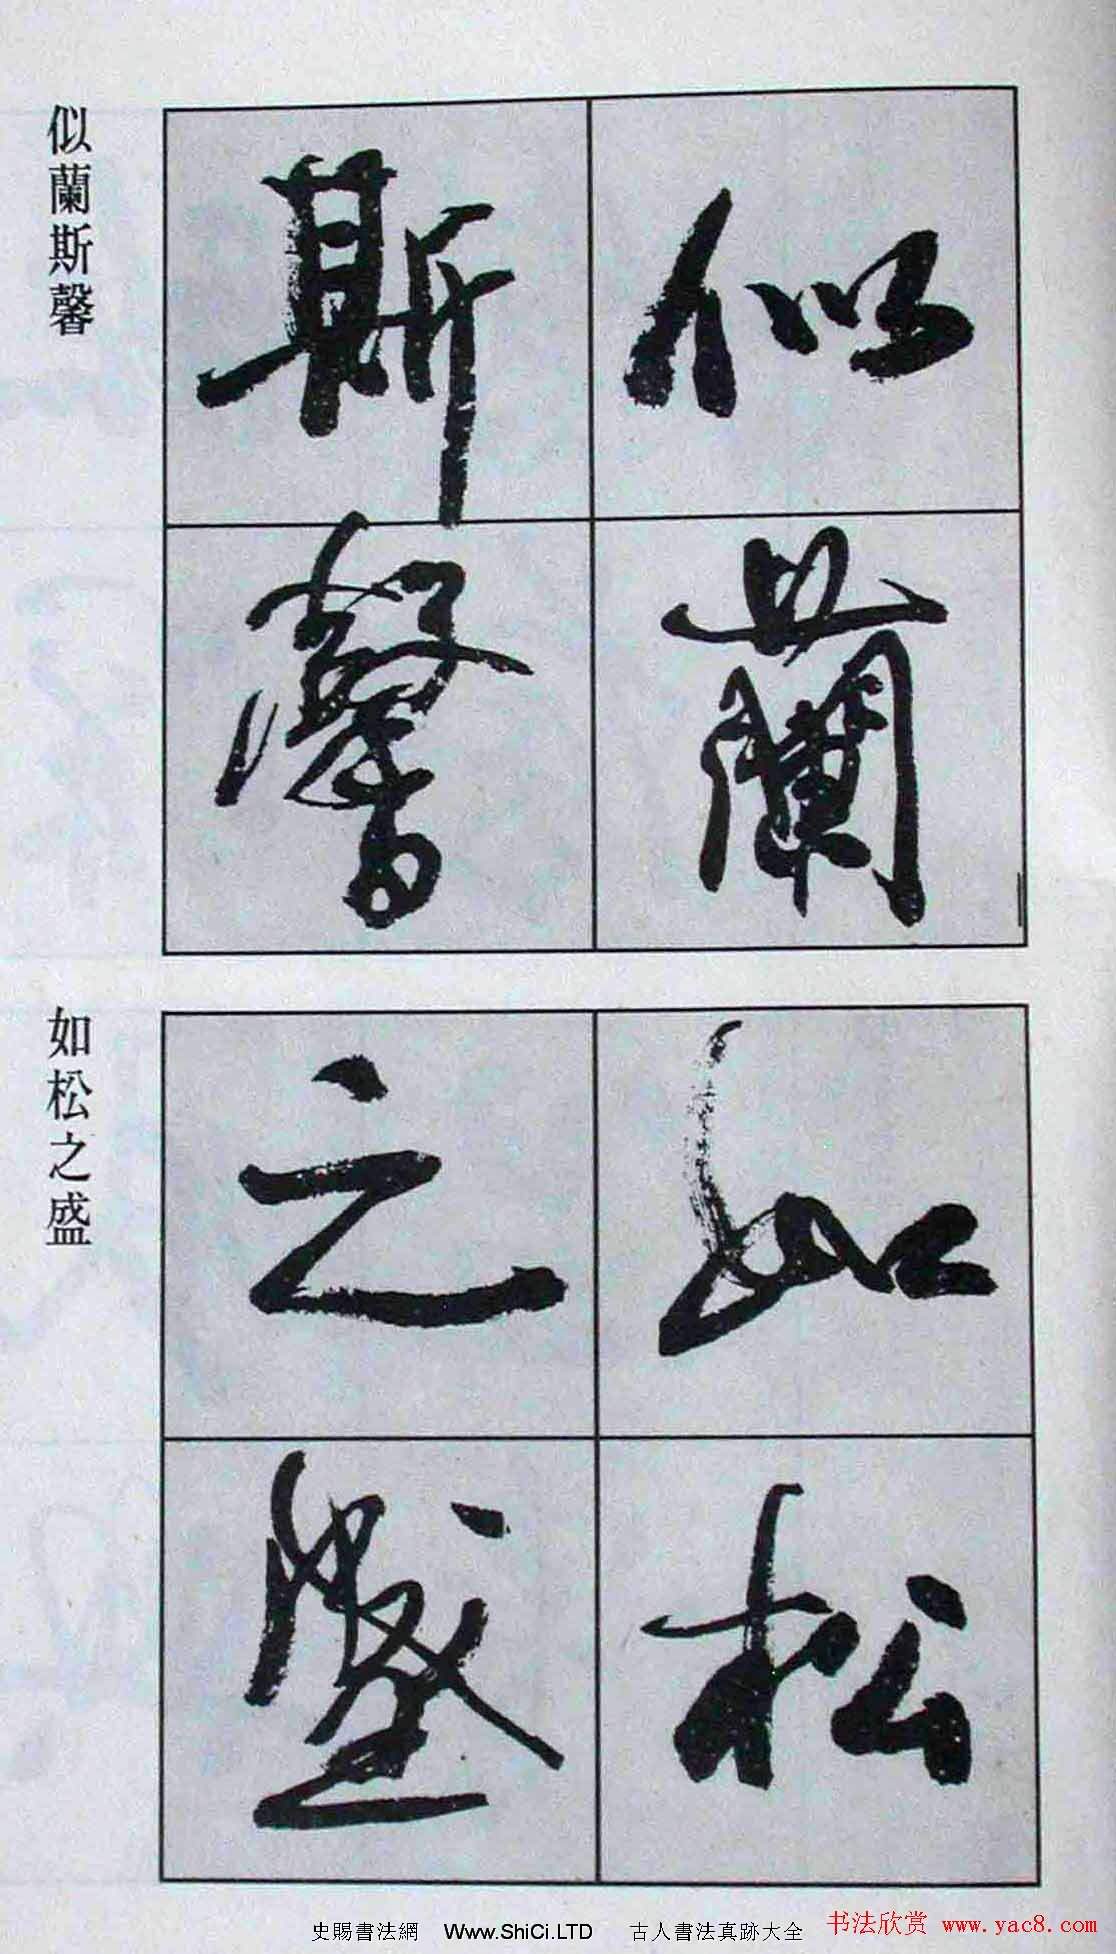 似蘭
斯馨
似蘭斯馨
如松
之盛
如松之盛
史賜書法網 Www.ShiCi.LTD 古人書法真跡大全
书法欣赏 www.yac8.com